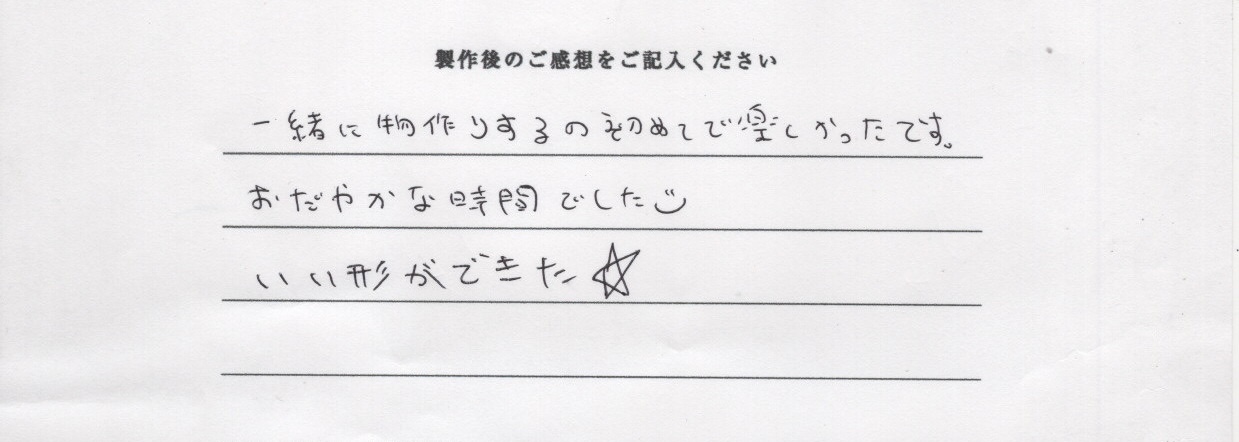 製作後のご感想をご記入ください
一緒に物作りするの初めてで楽しかったです。
おだやかな時間でした
いい形ができた☆